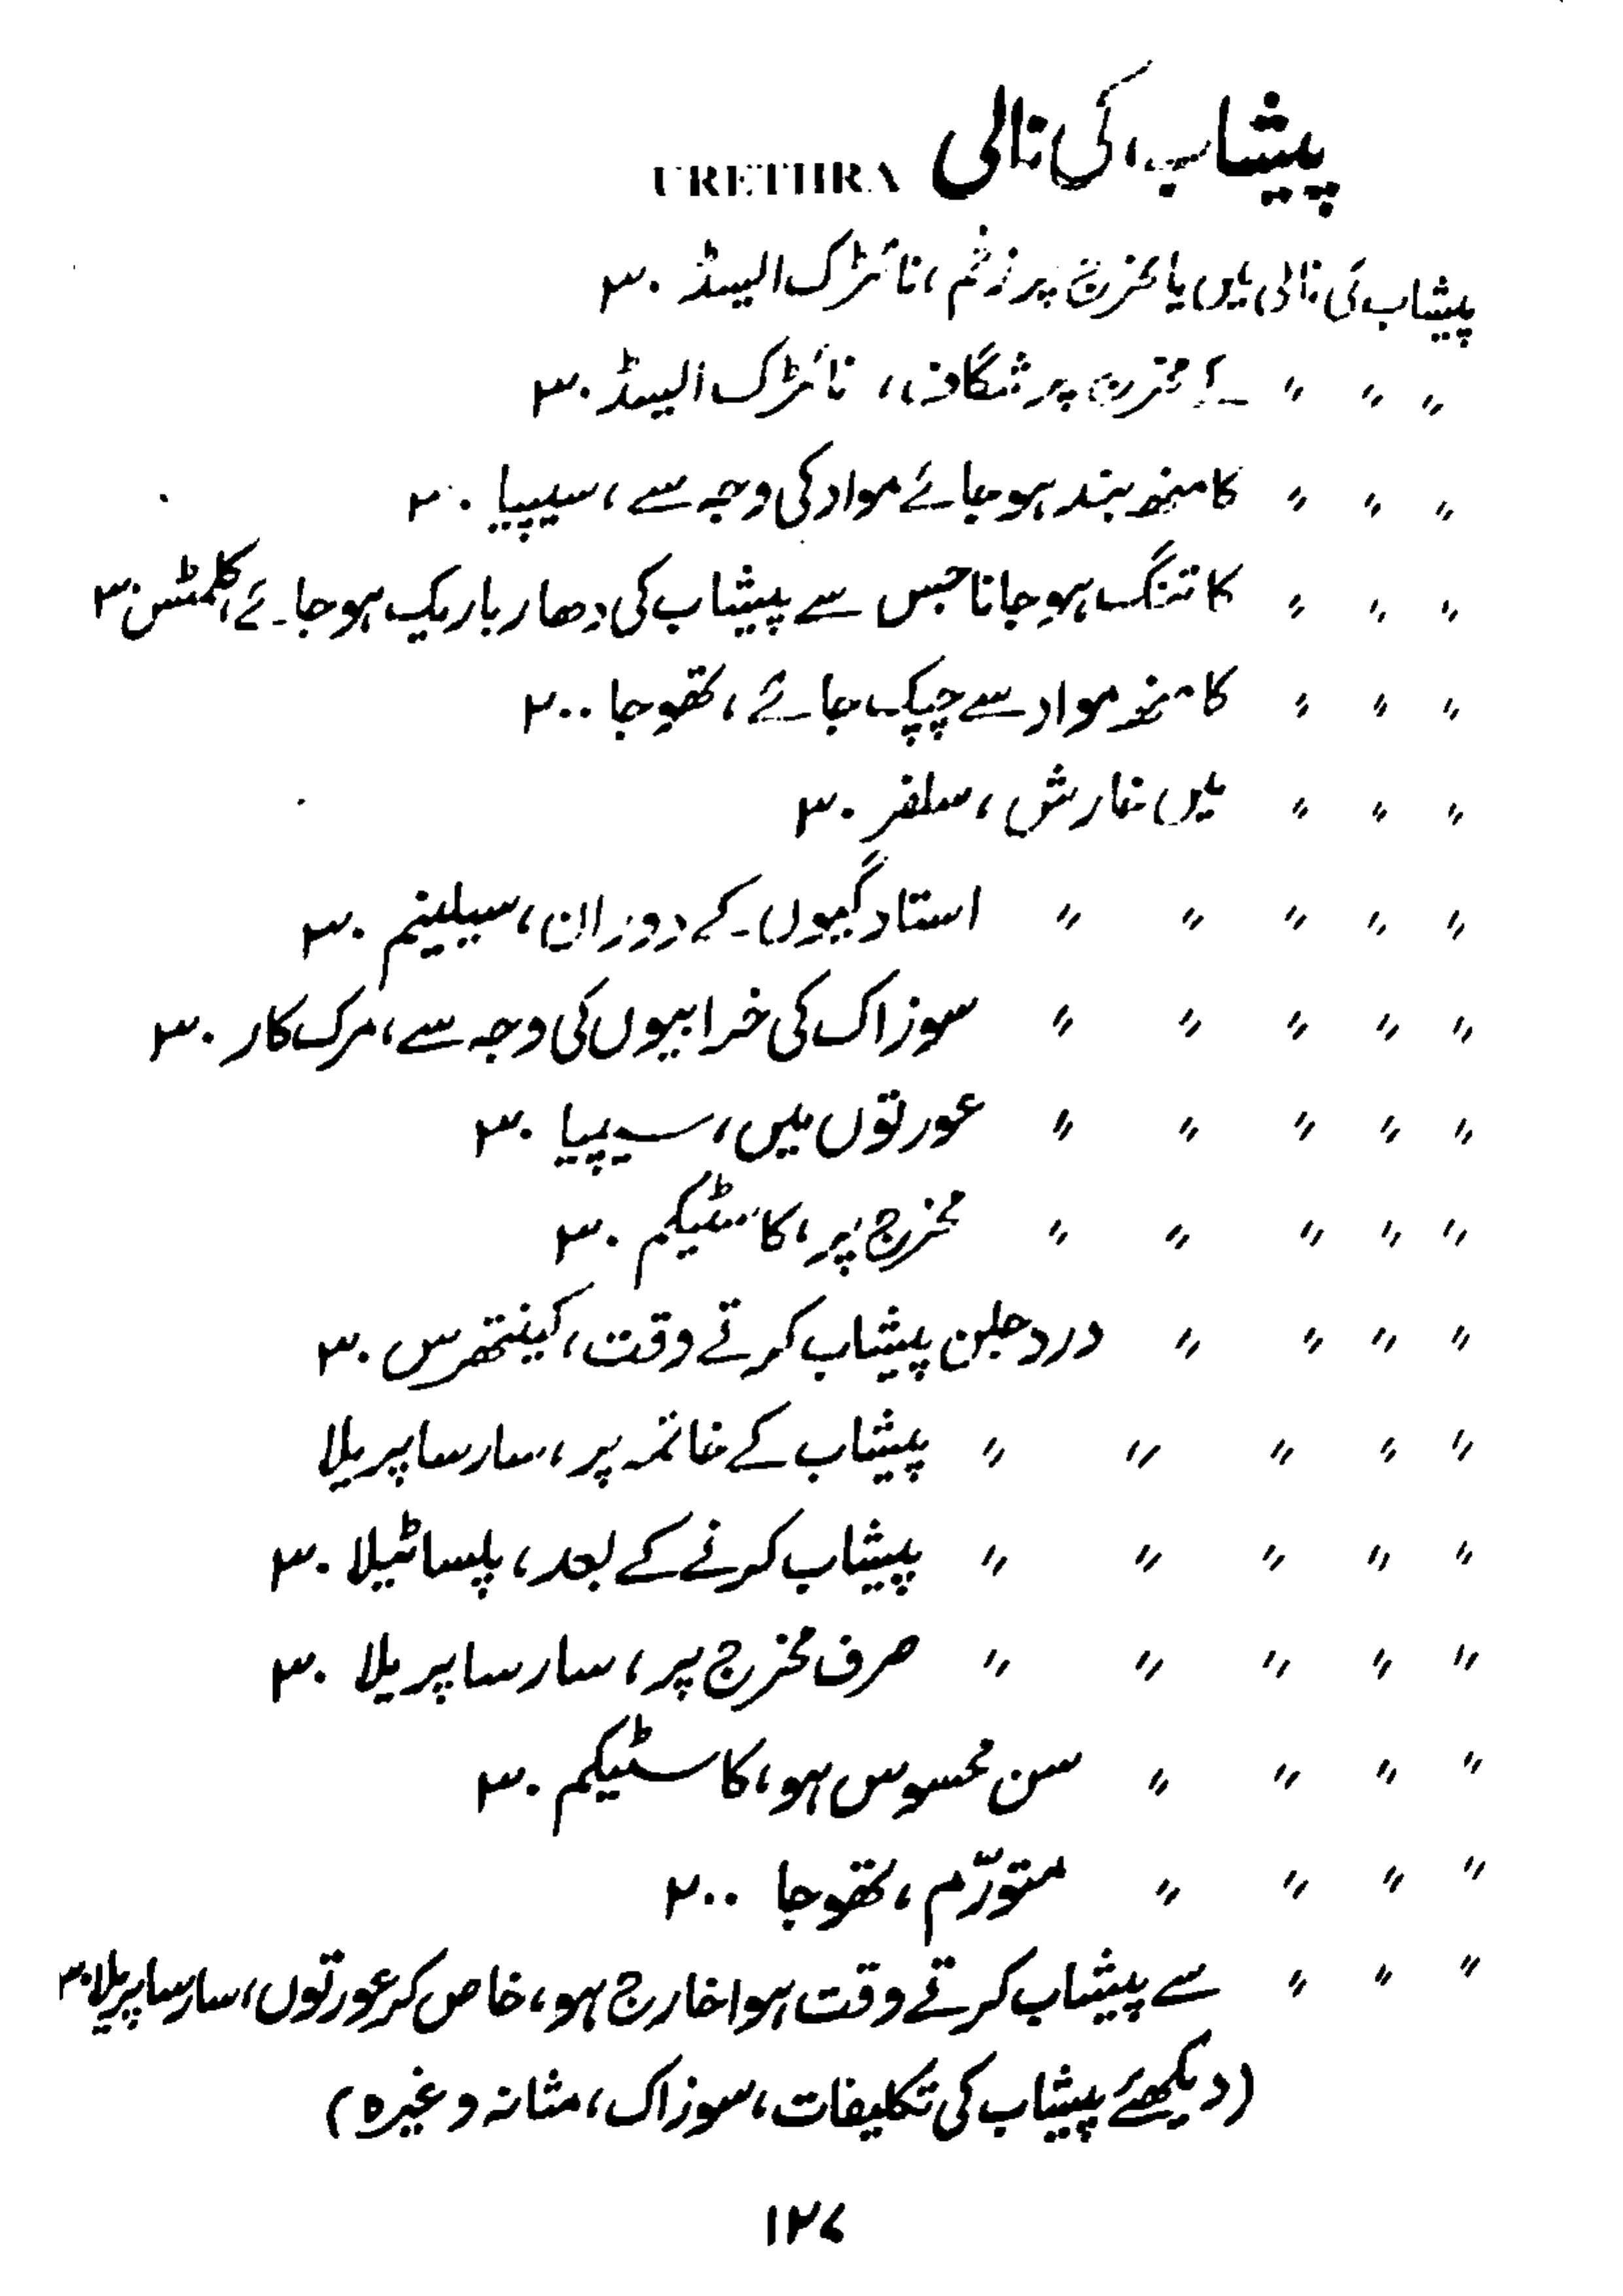 پیشاب کی نالی URETHRA
پیشاب کی نالی میں یا مخرج پر زخم، نائٹرک ایسڈ ۳۰
〃 〃 〃 کے مخرج پر شگاف، نائٹرک ایسڈ ۳۰
〃 〃 〃 کا منھ بند ہو جائے مواد کی وجہ سے، سیپیا ۳۰
〃 〃 〃 کا تنگ ہو جانا جس سے پیشاب کی دھار باریک ہو جائے، کلمٹس ۳۰
〃 〃 〃 کا منھ مواد سے چپک جائے، تھوجا ۲۰۰
〃 〃 〃 میں خارش، سلفر ۳۰
〃 〃 〃 〃 〃 استادگیوں کے دوران، سیلینیم ۳۰
〃 〃 〃 〃 〃 سوزاک کی خرابیوں کی وجہ سے، مرک کار ۳۰
〃 〃 〃 〃 〃 عورتوں میں، سیپیا ۳۰
〃 〃 〃 〃 〃 مخرج پر، کاسٹیکم ۳۰
〃 〃 〃 〃 درد جلن پیشاب کرتے وقت، کینتھرس ۳۰
〃 〃 〃 〃 〃 پیشاب کے خاتمہ پر، سارساپریلا
〃 〃 〃 〃 〃 پیشاب کرنے کے بعد، پلساٹیلا ۳۰
〃 〃 〃 〃 〃 صرف مخرج پر، سارساپریلا ۳۰
〃 〃 〃 〃 سن محسوس ہو، کاسٹیکم ۳۰
〃 〃 〃 〃 متورّم، تھوجا ۲۰۰
〃 〃 〃 سے پیشاب کرتے وقت ہوا خارج ہو، خاص کر عورتوں، سارساپریلا ۳۰
(دیکھئے پیشاب کی تکلیفات، سوزاک، مثانہ وغیرہ)
۱۲۷